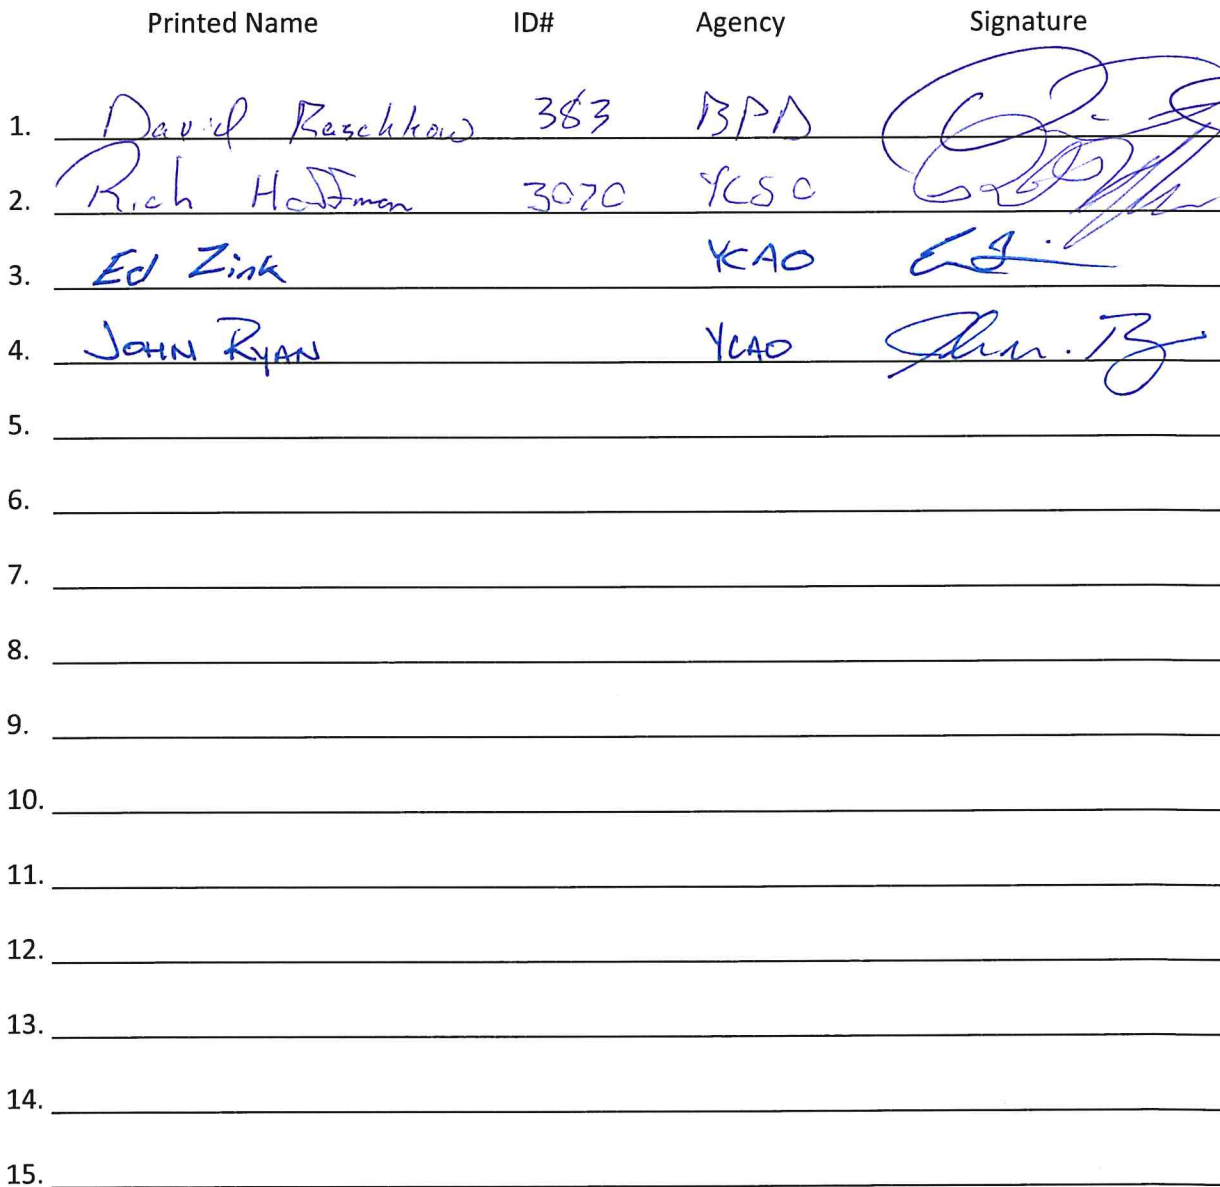 Printed Name ID# Agency Signature
1. David Raschkow 383 BPD
2. Rich Hoffman 3070 YCSO
3. Ed Zink YCAO
4. JOHN RYAN YCAO
5.
6.
7.
8.
9.
10.
11.
12.
13.
14.
15.